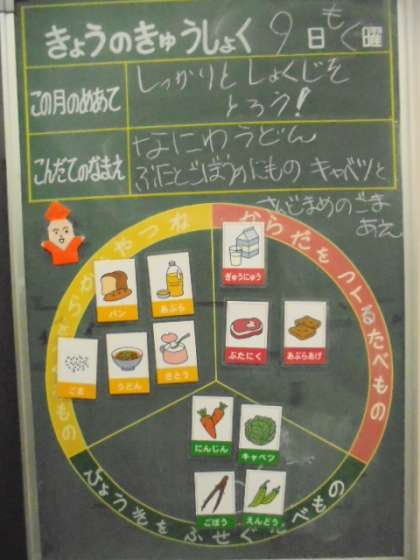 きょうのきゅうしょく 9日 もく曜
この月のめあて
しっかりと しょくじを
とろう!
こんだてのなまえ
なにわうどん
ぶたとごぼうのにもの キャベツと
さんどまめのごま
あえ
からだをつくるたべもの
ぎゅうにゅう
ぶたにく
あぶらあげ
パン
あぶら
ごま
うどん
さとう
にんじん
キャベツ
ごぼう
えんどう
びょうきをふせぐたべもの